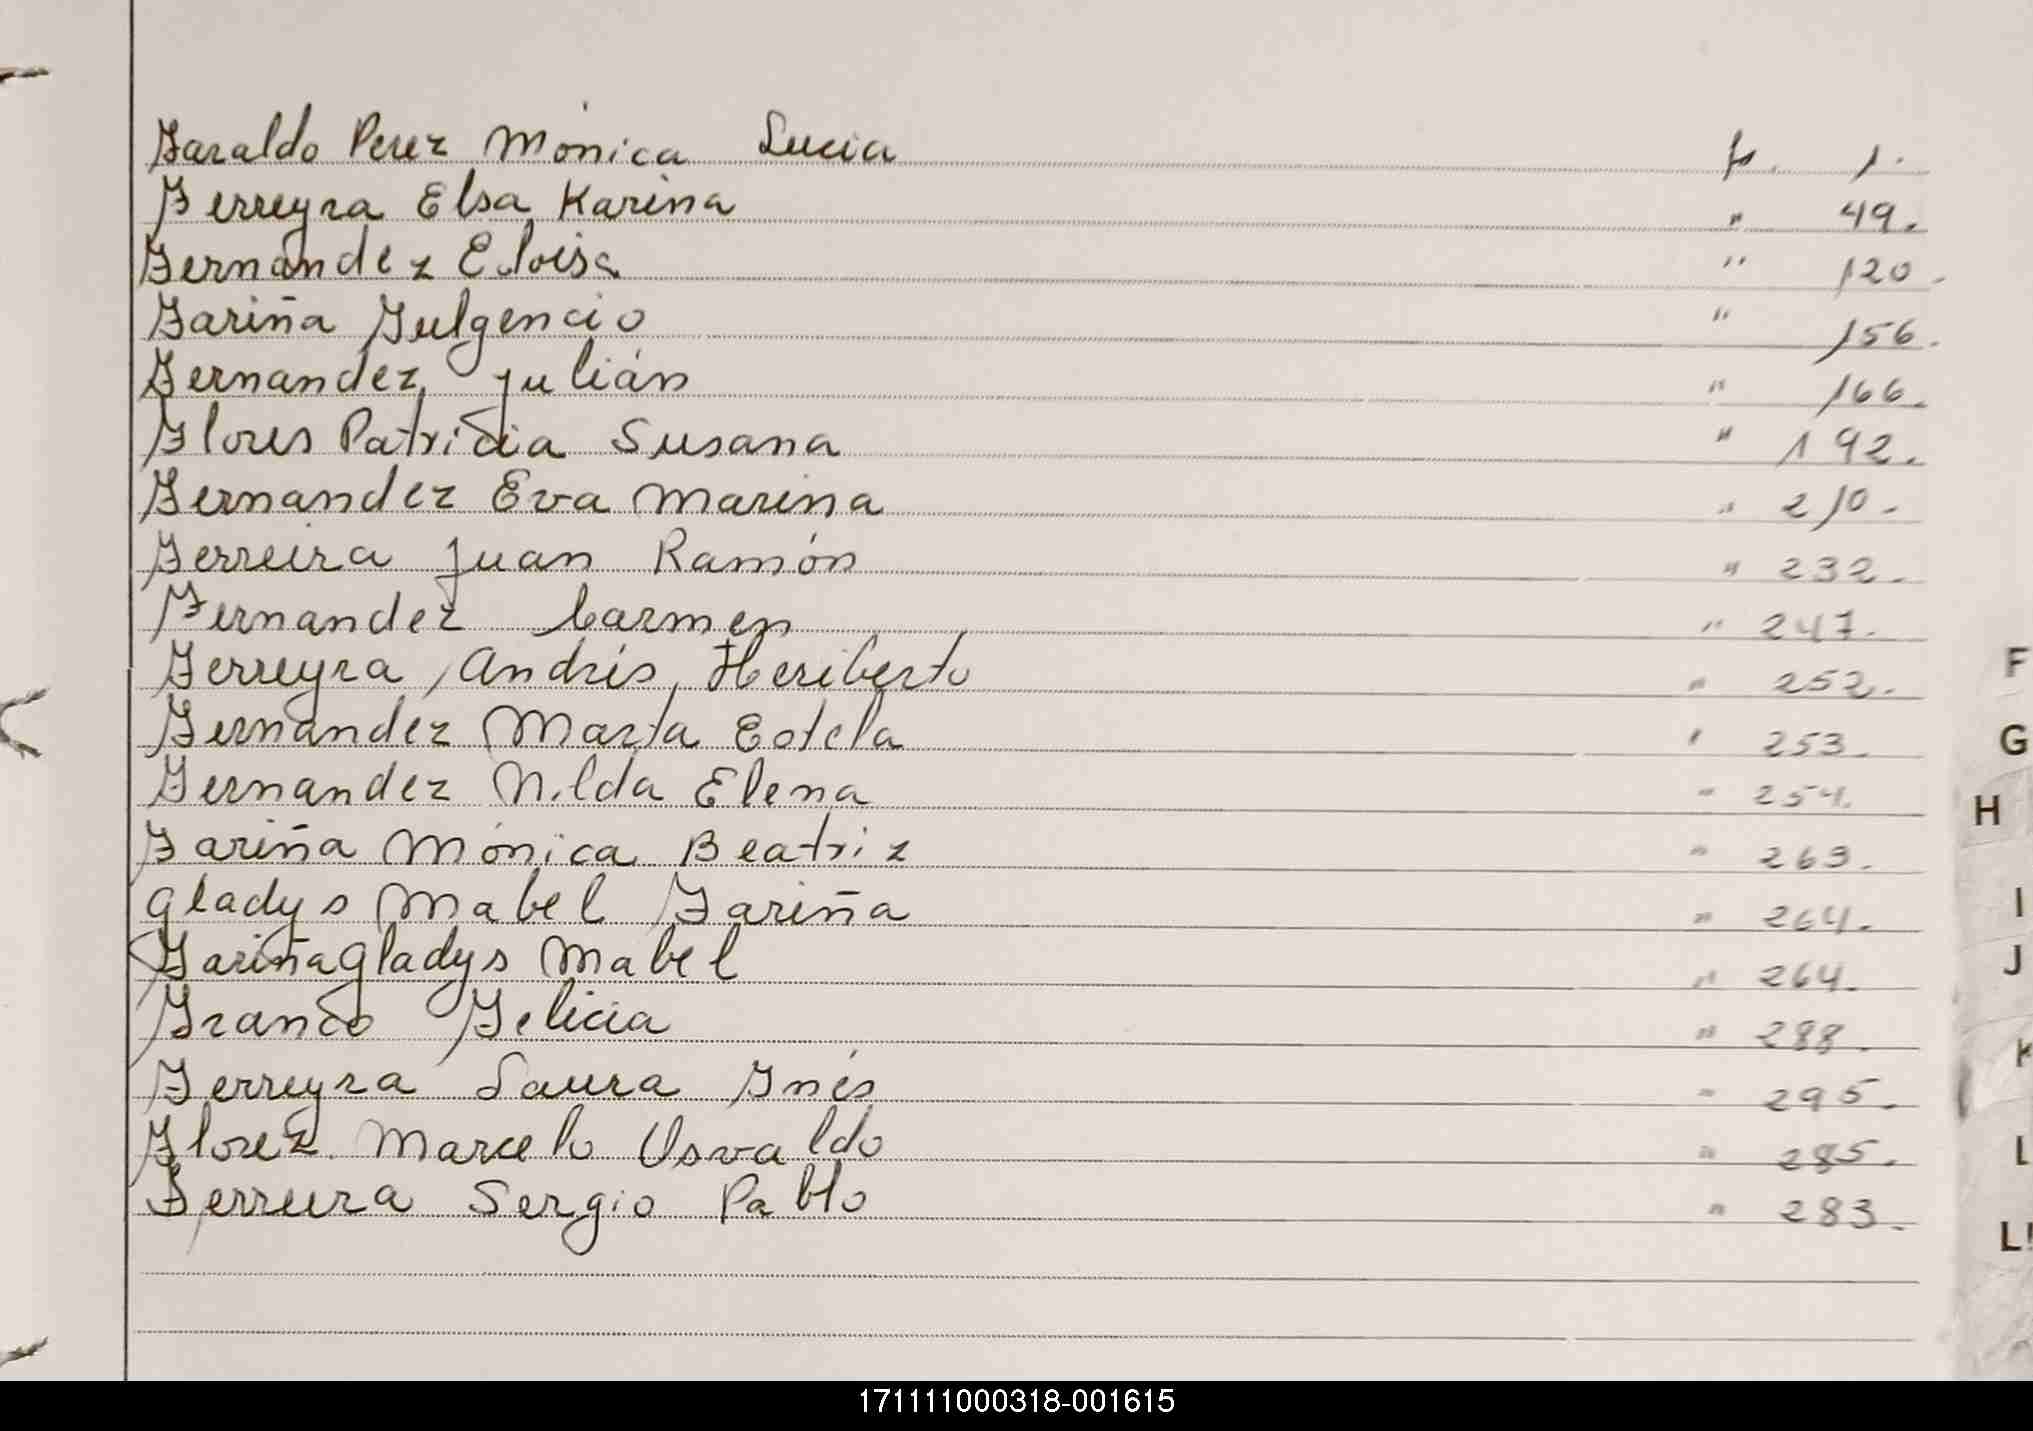 Faraldo Perez Mónica Lucia f. 1.
Ferreyra Elsa Karina " 49.
Fernandez Eloisa " 120.
Fariña Fulgencio " 156.
Fernandez Julián " 166.
Flores Patricia Susana " 192.
Fernandez Eva Marina " 210.
Ferreira Juan Ramón " 232.
Fernandez Carmen " 247.
Ferreyra Andrés Heriberto " 252.
Fernandez Marta Estela " 253.
Fernandez Nilda Elena " 254.
Fariña Mónica Beatriz " 263.
Gladys Mabel Fariña " 264.
Fariña Gladys Mabel " 264.
Franco Felicia " 288.
Ferreyra Laura Inés " 295.
Florez Marcelo Osvaldo " 285.
Ferreira Sergio Pablo " 283.
F
G
H
I
J
K
L
LL
171111000318-001615